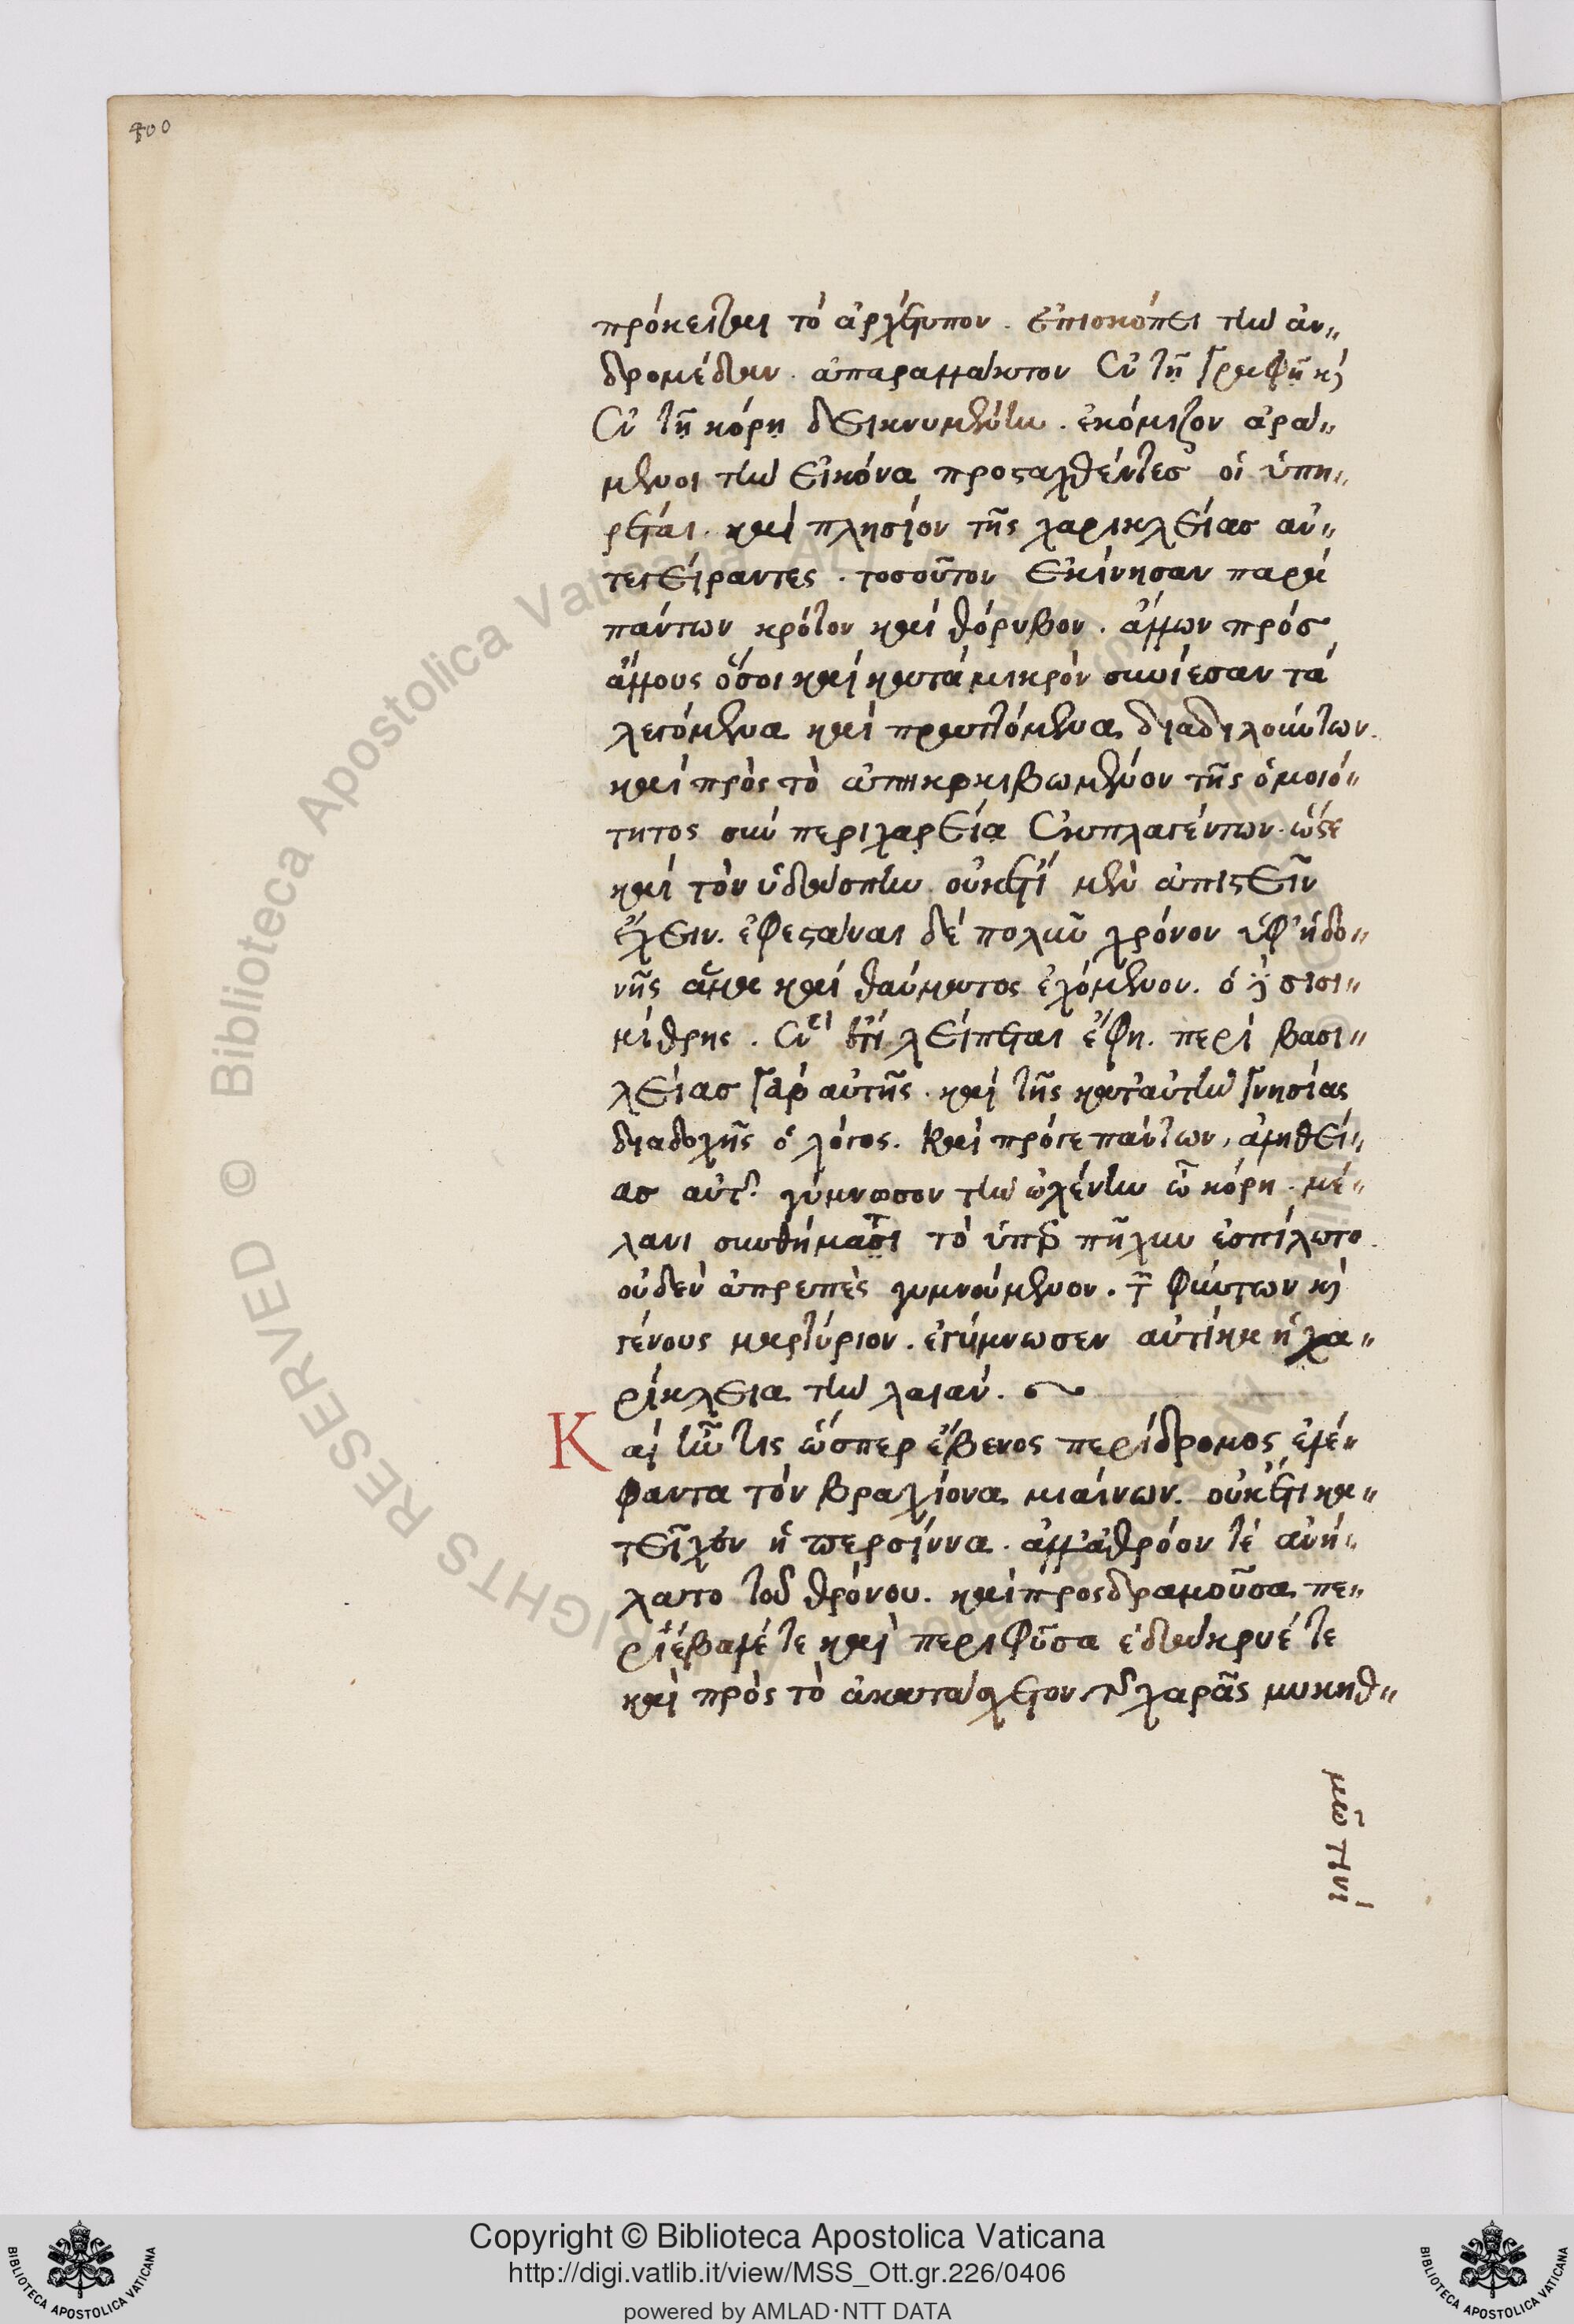 400
πρόκειται τὸ ἀρχέτυπον. ἐπισκόπει τὴν ἀν〃
δρομέδαν. ἀπαράλλακτον ἐν τῇ γραφῇ κ̀
ἐν τῇ κόρῃ δεικνυμένην. ἐκόμιζον ἀρά〃
μενοι τὴν εἰκόνα προσταχθέντες οἱ ὑπη〃
ρέται. καὶ πλησίον τῆς χαρικλείας ἀν〃
τεγείραντες. τοσοῦτον ἐκίνησαν παρὰ
πάντων κρότον καὶ θόρυβον. ἄλλων πρὸς
ἄλλους ὅσοι καὶ κατὰ μικρὸν συνίεσαν τὰ
λεγόμενα καὶ πραττόμενα διαδηλούντων.
καὶ πρὸς τὸ ἀπηκριβωμένον τῆς ὁμοιό〃
τητος σὺν περιχαρείᾳ ἐκπλαγέντων. ὥστε
καὶ τὸν ὑδάσπην οὐκέτι μὲν ἀπιστεῖν
ἔχειν. ἐφεστάναι δὲ πολὺν χρόνον ὑφ' ἡδο〃
νῆς ἅμα καὶ θαύματος ἐχόμενον. ὁ δὲ σισι〃
μίθρης. ἓν ἔτι λείπεται ἔφη. περὶ βασι〃
λείας γὰρ αὐτῆς. καὶ τῆς κατ' αὐτὴν γνησίας
διαδοχῆς ὁ λόγος. καὶ πρό γε πάντων, ἀληθεί〃
ας αὐτῆς. γύμνωσον τὴν ὠλένην ὦ κόρη. μέ〃
λανι συνθήματι τὸ ὑπὲρ πῆχυν ἐσπίλωτο.
οὐδὲν ἀπρεπὲς γυμνούμενον. τῶν φύντων κ̀
γένους μαρτύριον. ἐγύμνωσεν αὐτίκα ἡ χα〃
ρίκλεια τὴν λαιάν.
Καὶ ἦν τις ὥσπερ ἔβενος περίδρομος ἐλέ〃
φαντα τὸν βραχίονα μιαίνων. οὐκέτι κα〃
τεῖχεν ἡ περσίννα. ἀλλ' ἀθρόον τὲ ἀνή〃
λατο τοῦ θρόνου. καὶ προσδραμοῦσα πε〃
ριέβαλέ τε καὶ περιφῦσα ἐδάκρυέ τε
καὶ πρὸς τὸ ἀκατάσχετον τῆς χαρᾶς μυκηθ〃
μῶ τινὶ
Copyright © Biblioteca Apostolica Vaticana
http://digi.vatlib.it/view/MSS_Ott.gr.226/0406
powered by AMLAD·NTT DATA